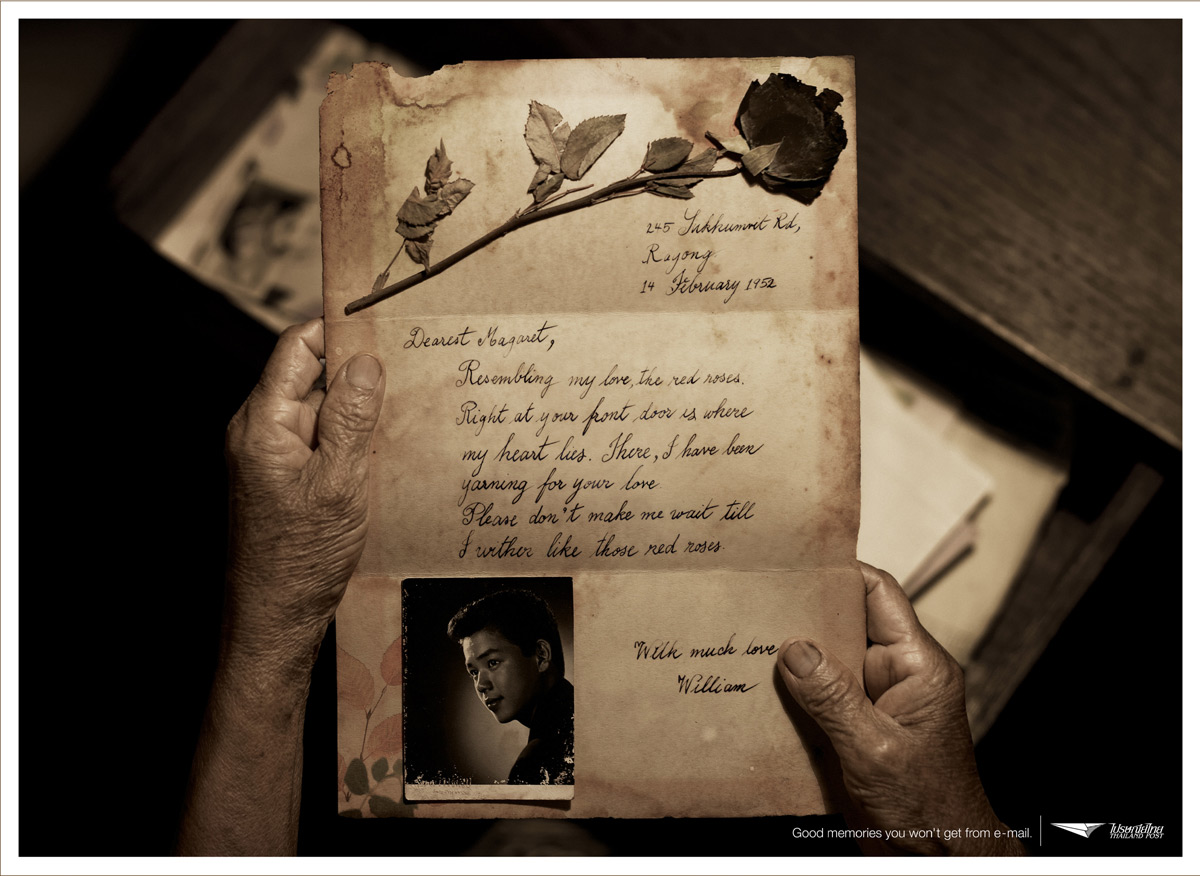 245 Sukhumvit Rd,
Rayong.
14 February 1952
Dearest Magaret,
Resembling my love, the red roses.
Right at your front door is where
my heart lies. There, I have been
yarning for your love.
Please don't make me wait till
I wither like those red roses.
With much love
William
Good memories you won't get from e-mail.
ไปรษณีย์ไทย
THAILAND POST